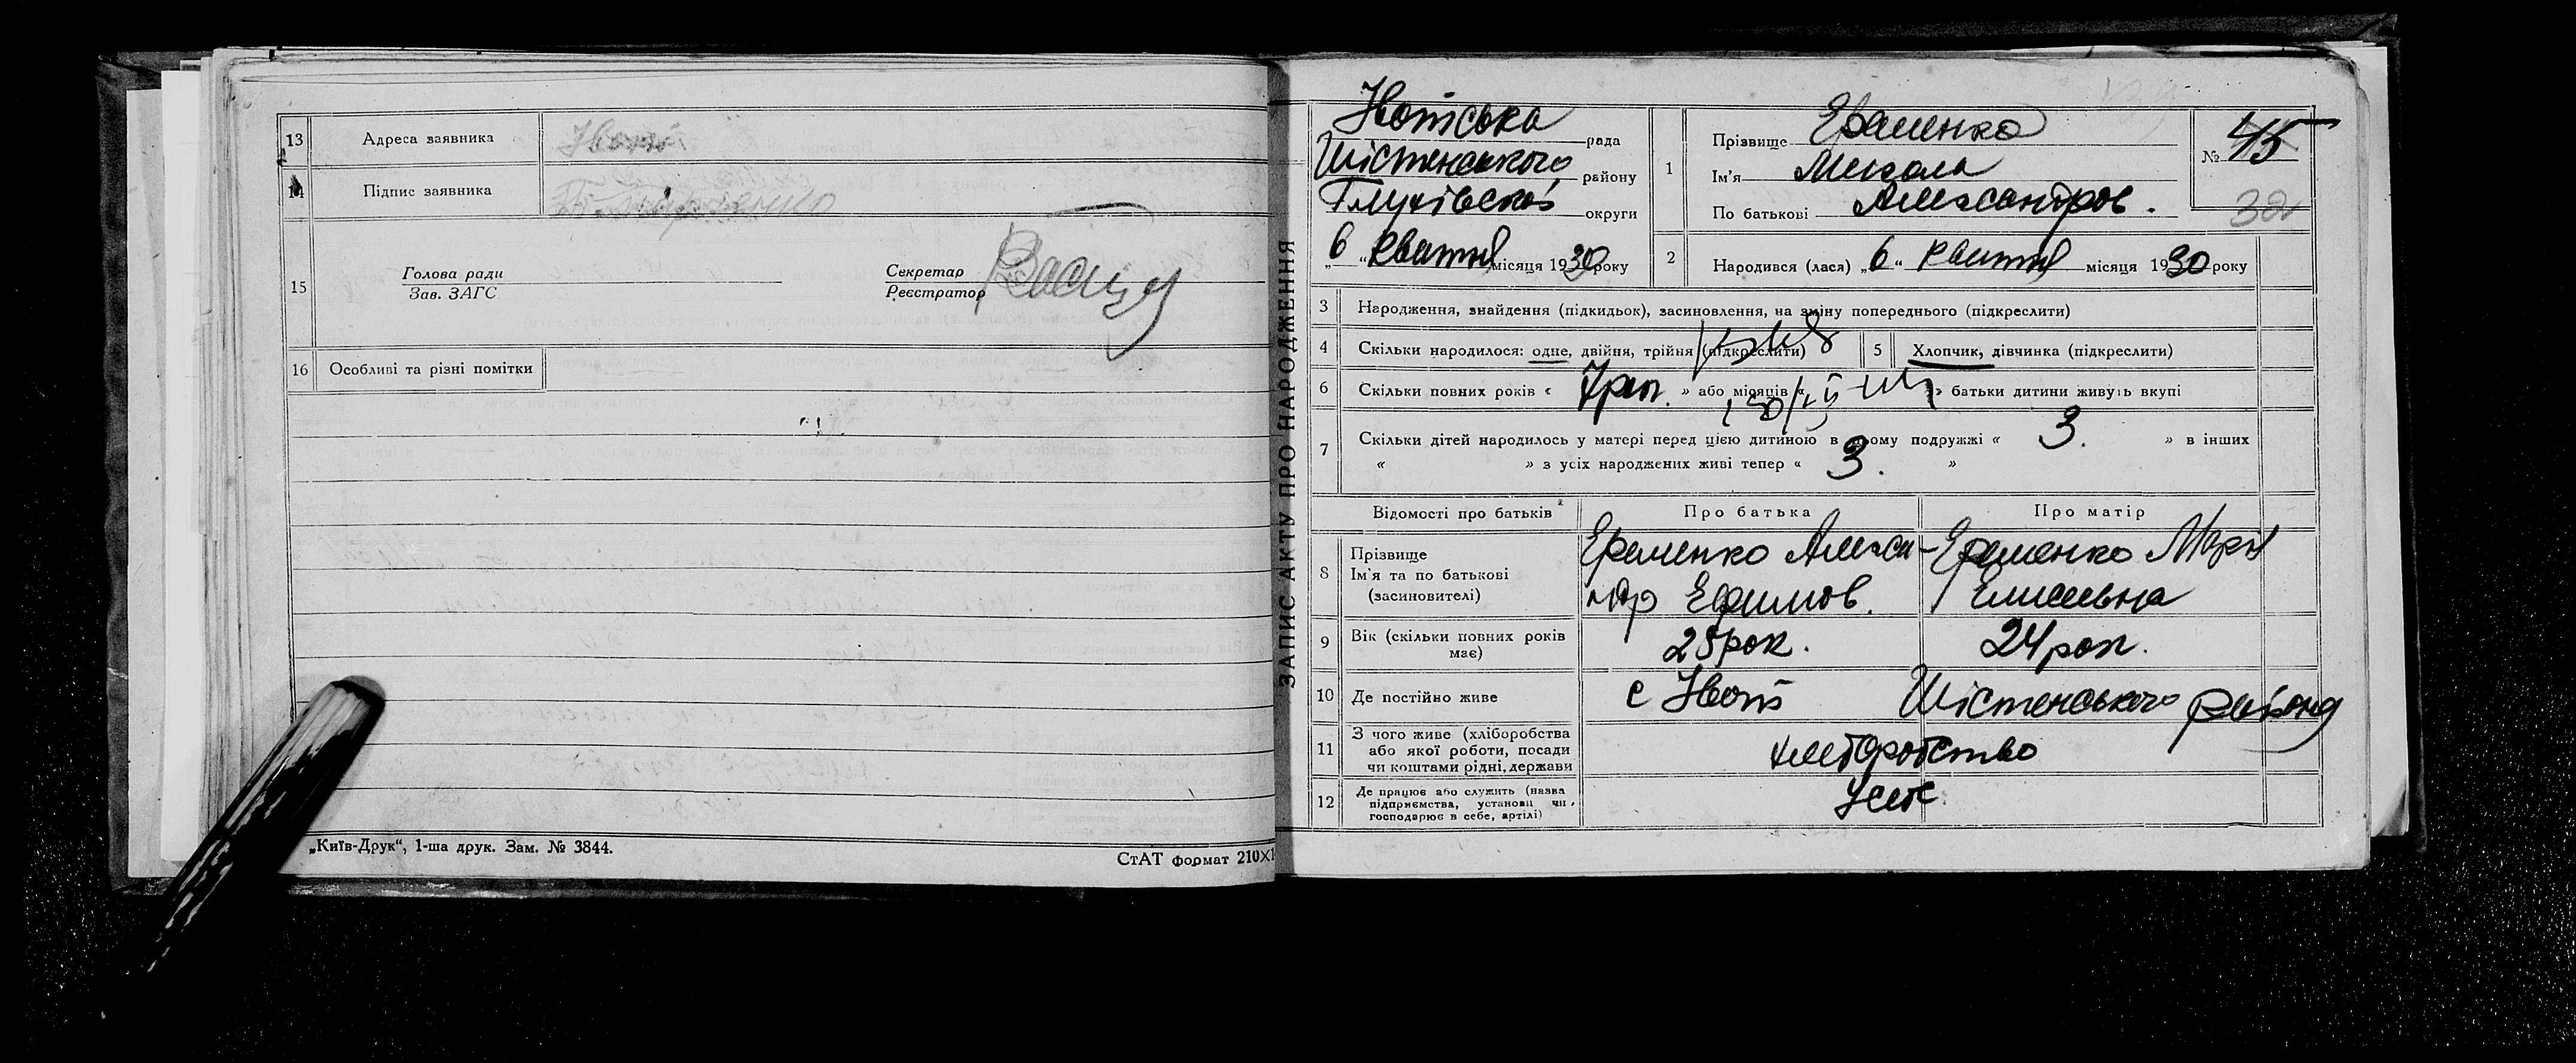 13 Адреса заявника Івот
14 Підпис заявника
15 Голова ради
Зав. ЗАГС
Секретар
Реєстратор
16 Особливі та різні помітки
„Київ-Друк“, 1-ша друк. Зам. № 3844.
СтАТ формат 210×1
ЗАПИС АКТУ ПРО НАРОДЖЕННЯ
Івотська рада
Шістенського району
Глухівської округи
„6“ Квітня місяця 1930 року
1 Прізвище Еременко
Ім'я Микола
По батькові Александров.
№ 45
32
2 Народився (лася) „6“ Квітня місяця 1930 року
3 Народження, знайдення (підкидьок), засиновлення, на зміну попереднього (підкреслити)
4 Скільки народилося: одне, двійня, трійня (підкреслити)
5 Хлопчик, дівчинка (підкреслити)
6 Скільки повних років « 7 рок. » або місяців « » батьки дитини живуть вкупі
7 Скільки дітей народилось у матері перед цією дитиною в цьому подружжі « 3. » в інших
« » з усіх народжених живі тепер « 3. »
Відомості про батьків Про батька Про матір
8 Прізвище
Ім'я та по батькові
(засиновителі)
Еременко Алекса-
ндр Ефимов.
Еременко Марія
9 Вік (скільки повних років має) 25 рок. 24 рок.
10 Де постійно живе с Івот Шістенського району
11 З чого живе (хліборобства
або якої роботи, посади
чи коштами рідні, держави
хліборобство
12 Де працює або служить (назва
підприємства, установи чи
господарює в себе, артілі)